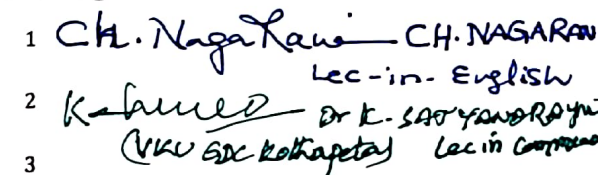 1 Ch. Nagarani CH. NAGARAN
Lec-in-English
2 Dr K. SATYANARAYA
(VKV GDC Kothapeta) Lec in
3